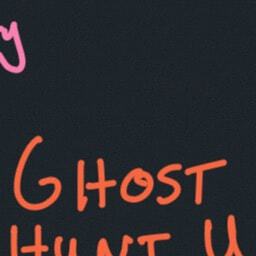 y
GHOST
HUNT U